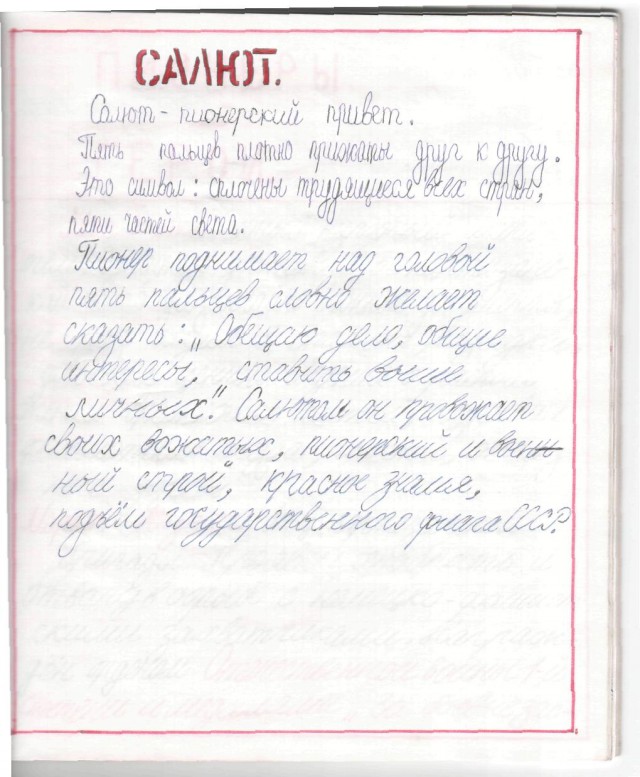 САЛЮТ.
Салют - пионерский привет.
Пять пальцев плотно прижаты друг к другу.
Это символ: сплочены трудящиеся всех стран,
пяти частей света.
Пионер поднимает над головой
пять пальцев словно желает
сказать: „Обещаю дело, общие
интересы, ставить выше
личных". Салютом он провожает
своих вожатых, пионерский и воен
ный строй, красное знамя,
подъём государственного флага СССР.